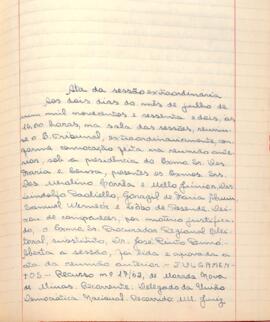 Ata da sessão extraordinaria
Aos dois dias do mês de julho de
um mil novecentos e sessenta e dois, às
16,00 horas, na sala das sessões, reuniu-
se o E. Tribunal, extraordinariamente, con-
forme convocação feita na reunião ante-
rior, sob a presidência do Exmo Sr. Des.
Faria e Sousa, presentes os Exmos. Srs.
Des. Merolino Corrêa e Mello Junior, Drs.
Padiello, Gonzaga de
Samuel Werneck e Lidio de Resende. Dei-
xou de comparecer, por motivo justifica-
do, o Exmo Sr. Procurador Regional Elei-
toral, substituto, Dr. José Pinto
Aberta a sessão, foi lida e aprovada a
ata da reunião anterior - JULGAMEN-
TOS - Recurso nº 17/62, de Morada Nova
de Minas. Recorrente: Delegado da União
Democrática Nacional. Recorrido: MM. Juiz